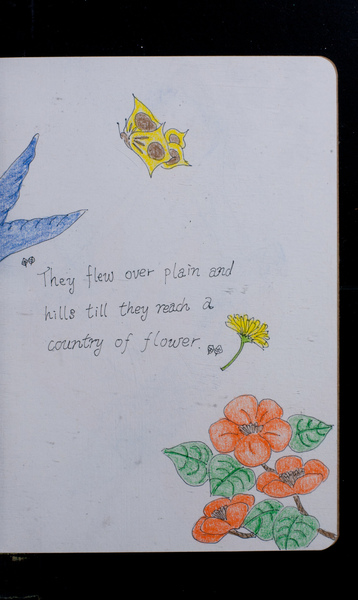 "They flew over plain and
hills till they reach a
country of flower."